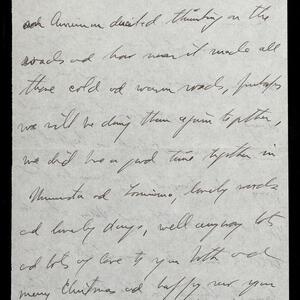 American dusted thinking on the
roads ad how near it made all
those cold ad warm roads, perhaps
we will be doing them again together,
we did have a good time together in
ad Louisiana, lovely roads
ad lovely days, well anyway lots
ad lots of love to you both ad
merry Christmas ad happy new year